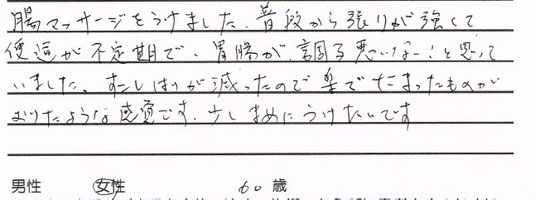 腸マッサージをうけました。普段から張りが強くて
便通が不定期で、胃腸が、調子悪いなー!と思って
いました。すこしはりが減ったので楽でたまったものが
おりたような感覚です。少しまめにうけたいです
男性 女性 60 歳